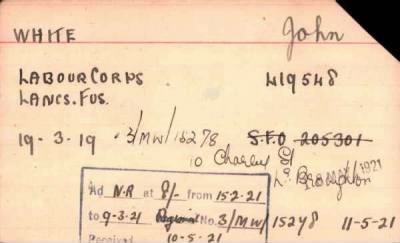 WHITE John
LABOUR CORPS 419548
LANCS. FUS.
19-3-19 3/MW/15278 S.F.O 205301
10 Charles St
Lr Broughton /1921
Ad N.R at 8/- from 15-2-21
to 9-3-21 No. 3/MW/15278 11-5-21
Received 10-5-21